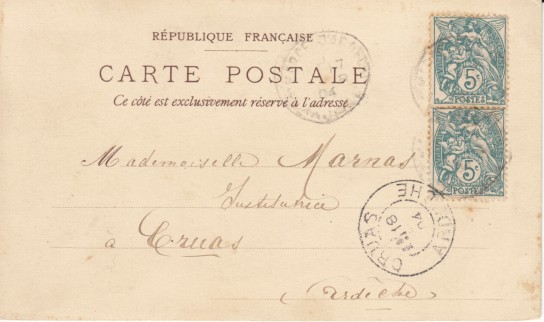 RÉPUBLIQUE FRANÇAISE
CARTE POSTALE
Ce côté est exclusivement réservé à l'adresse
5c
POSTES
5c
POSTES
Mademoiselle Marnas
Institutrice
à Cruas
Ardèche
CRUAS
18
04
ARDÈCHE